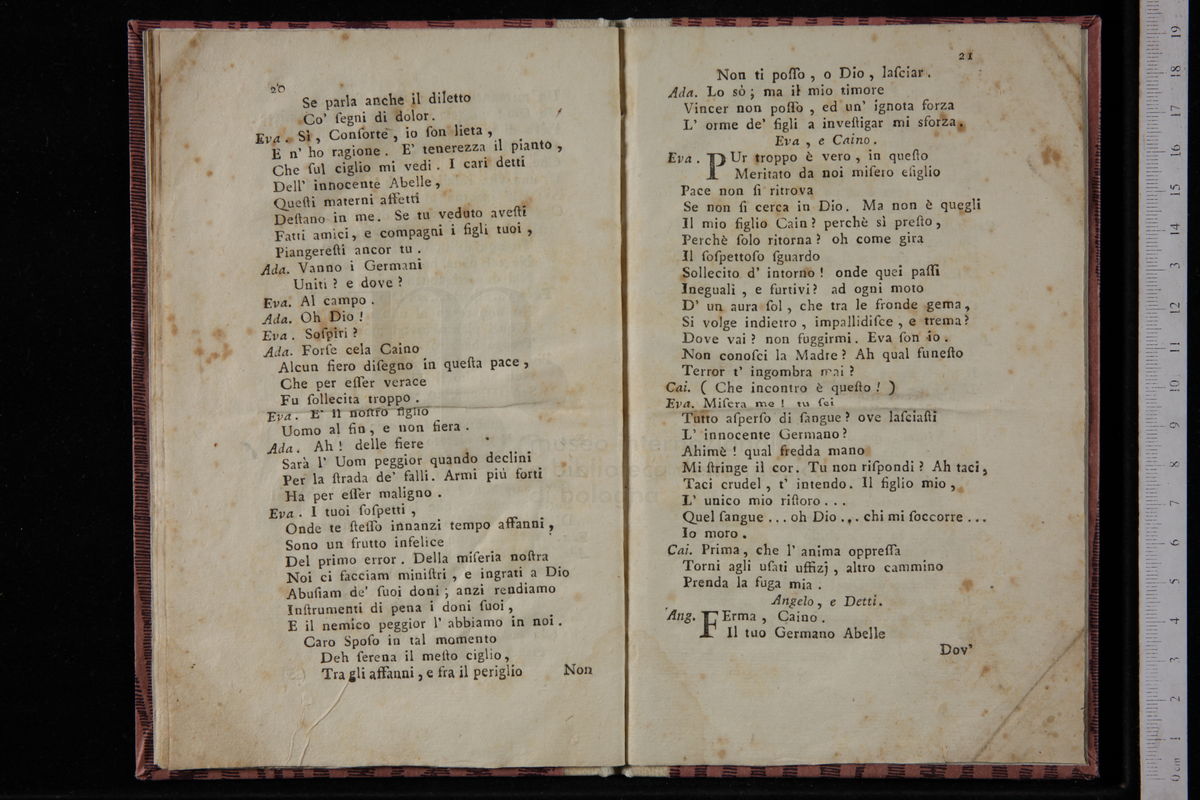 20
Se parla anche il diletto
Co' ſegni di dolor.
Eva. Sì, Conſorte, io ſon lieta,
E n' ho ragione. E' tenerezza il pianto,
Che ſul ciglio mi vedi. I cari detti
Dell' innocente Abelle,
Queſti materni affetti
Deſtano in me. Se tu veduto aveſti
Fatti amici, e compagni i figli tuoi,
Piangereſti ancor tu.
Ada. Vanno i Germani
Uniti? e dove?
Eva. Al campo.
Ada. Oh Dio!
Eva. Soſpiri?
Ada. Forſe cela Caino
Alcun fiero diſegno in queſta pace,
Che per eſſer verace
Fu ſollecita troppo.
Eva. E' il noſtro figlio
Uomo al fin, e non fiera.
Ada. Ah! delle fiere
Sarà l' Uom peggior quando declini
Per la ſtrada de' falli. Armi più forti
Ha per eſſer maligno.
Eva. I tuoi ſoſpetti,
Onde te ſteſſo innanzi tempo affanni,
Sono un frutto infelice
Del primo error. Della miſeria noſtra
Noi ci facciam miniſtri, e ingrati a Dio
Abuſiam de' ſuoi doni; anzi rendiamo
Inſtrumenti di pena i doni ſuoi,
E il nemico peggior l' abbiamo in noi.
Caro Spoſo in tal momento
Deh ſerena il meſto ciglio,
Tra gli affanni, e fra il periglio
Non
21
Non ti poſſo, o Dio, laſciar.
Ada. Lo sò; ma il mio timore
Vincer non poſſo, ed un' ignota forza
L' orme de' figli a inveſtigar mi sforza.
Eva, e Caino.
Eva. PUr troppo è vero, in queſto
Meritato da noi miſero eſiglio
Pace non ſi ritrova
Se non ſi cerca in Dio. Ma non è quegli
Il mio figlio Cain? perchè sì preſto,
Perchè ſolo ritorna? oh come gira
Il ſoſpettoſo ſguardo
Sollecito d' intorno! onde quei paſſi
Ineguali, e furtivi? ad ogni moto
D' un aura ſol, che tra le fronde gema,
Si volge indietro, impallidiſce, e trema?
Dove vai? non fuggirmi. Eva ſon io.
Non conoſci la Madre? Ah qual funeſto
Terror t' ingombra mai?
Cai. ( Che incontro è queſto! )
Eva. Miſera me! tu ſei
Tutto aſperſo di ſangue? ove laſciaſti
L' innocente Germano?
Ahimè! qual fredda mano
Mi ſtringe il cor. Tu non riſpondi? Ah taci,
Taci crudel, t' intendo. Il figlio mio,
L' unico mio riſtoro...
Quel ſangue... oh Dio... chi mi ſoccorre...
Io moro.
Cai. Prima, che l' anima oppreſſa
Torni agli uſati uffizj, altro cammino
Prenda la fuga mia.
Angelo, e Detti.
Ang. FErma, Caino.
Il tuo Germano Abelle
Dov'